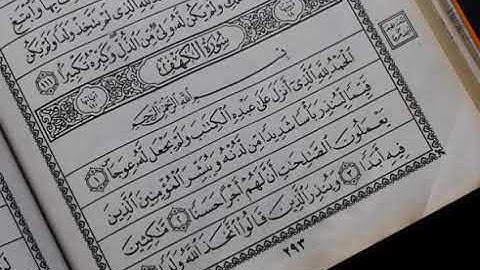 وَقُلِ ٱلْحَمْدُ لِلَّهِ ٱلَّذِى لَمْ يَتَّخِذْ وَلَدًا وَلَمْ يَكُن
وَلَمْ يَكُن لَّهُۥ وَلِىٌّ مِّنَ ٱلذُّلِّ وَكَبِّرْهُ تَكْبِيرًا ١١١
سُورَةُ الكَهْفِ
بِسْمِ ٱللَّهِ ٱلرَّحْمَٰنِ ٱلرَّحِيمِ
ٱلْحَمْدُ لِلَّهِ ٱلَّذِىٓ أَنزَلَ عَلَىٰ عَبْدِهِ ٱلْكِتَٰبَ وَلَمْ يَجْعَل لَّهُۥ عِوَجَا ١
قَيِّمًا لِّيُنذِرَ بَأْسًا شَدِيدًا مِّن لَّدُنْهُ وَيُبَشِّرَ ٱلْمُؤْمِنِينَ ٱلَّذِينَ
يَعْمَلُونَ ٱلصَّٰلِحَٰتِ أَنَّ لَهُمْ أَجْرًا حَسَنًا ٢ مَّٰكِثِينَ
فِيهِ أَبَدًا ٣ وَيُنذِرَ ٱلَّذِينَ قَالُوا۟ ٱتَّخَذَ ٱللَّهُ وَلَدًا ٤
٢٩٣